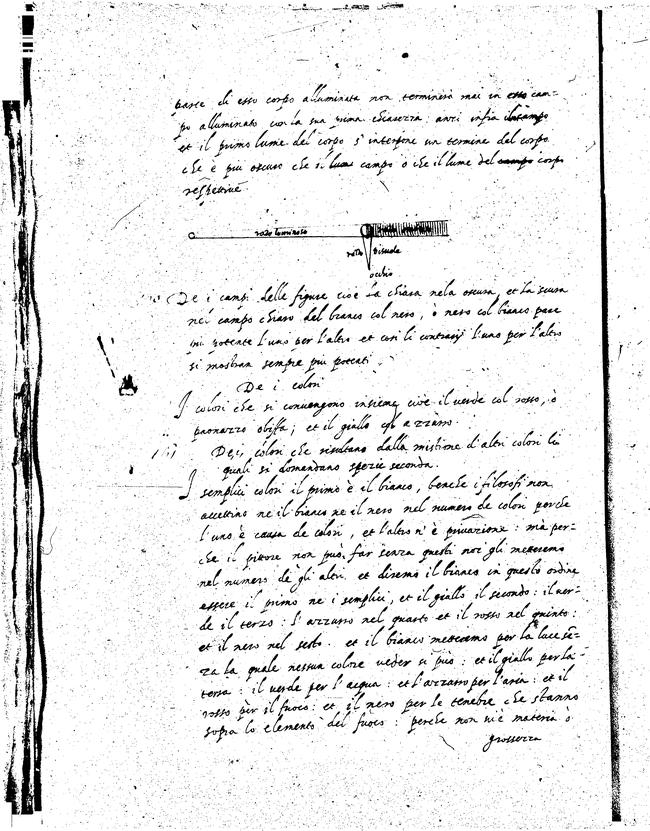 parte di esso corpo alluminata non terminerà mai in esso cam-
po alluminato con la sua prima chiarezza: anzi infra il campo
et il primo lume del corpo s'interpone un termine del corpo
che è più oscuro che il lume campo o che il lume del campo corpo
respettive
razo luminoso
razo visuale
occhio
De i campi delle figure cioè la chiara nela oscura, et la scura
nel campo chiaro del bianco col nero, ò nero col bianco pare
più potente l'uno per l'altro et cosi li contrarij l'uno per l'altro
si mostran sempre più potenti.
De i colori
I colori che si convengono insieme, cioè il verde col rosso, ò
paonazzo ò biffa; et il giallo col azzurro.
De i colori che risultano dalla mistione d'altri colori li
quali si domandano spezie seconda.
I semplici colori il primo è il bianco, benche i filosofi non
accettino ne il bianco ne il nero nel numero de colori perche
l'uno è causa de colori, et l'altro n'è privazione: mà per-
che il pittore non può far senza questi noi gli metteremo
nel numero de gli altri. et diremo il bianco in questo ordine
essere il primo ne i semplici, et il giallo il secondo: il ver-
de il terzo: l'azzurro nel quarto et il rosso nel quinto:
et il nero nel sesto. et il bianco metteremo per la luce sē-
za la quale nessun colore veder si può: et il giallo per la
terra: il verde per l'acqua: et l'azzurro per l'aria: et il
rosso per il fuoco: et il nero per le tenebre che stanno
sopra lo elemento del fuoco: perche non v'è materia o
grossezza